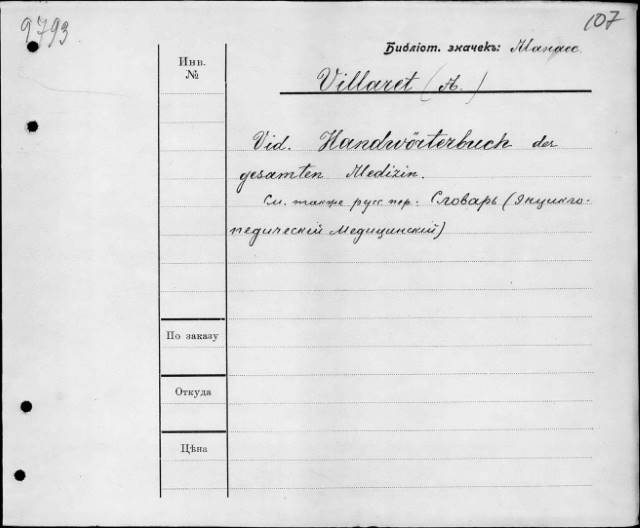 9793
107
Библіот. значекъ: Манасс.
Инв.
№
Villaret (A.)
Vid. Handwörterbuch der
gesamten Medizin.
См. также русс. пер.: Словарь (Энцикло-
педическій Медицинскій)
По заказу
Откуда
Цѣна